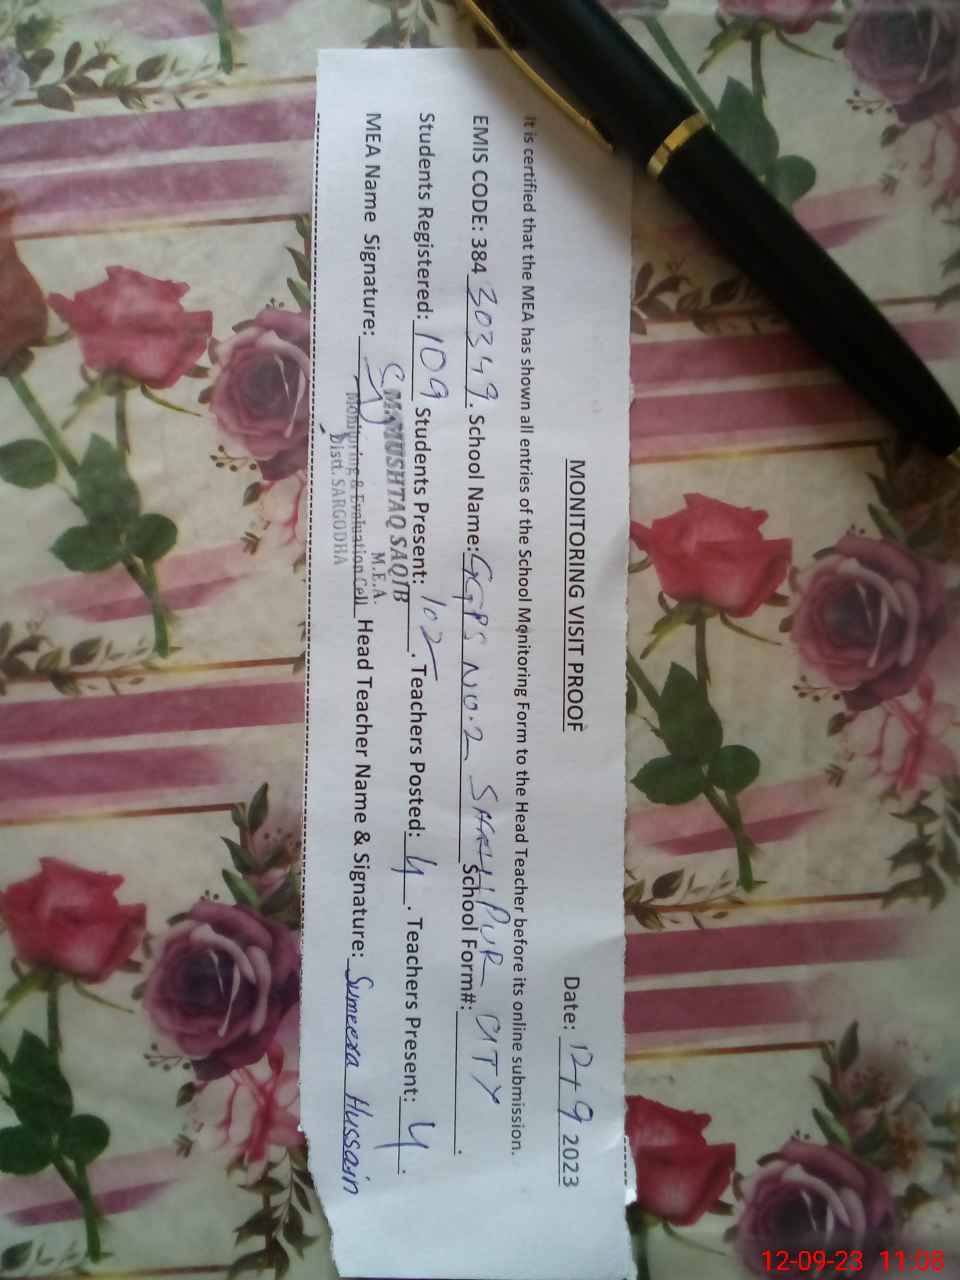 MONITORING VISIT PROOF
Date: 12+9 2023
It is certified that the MEA has shown all entries of the School Monitoring Form to the Head Teacher before its online submission.
EMIS CODE: 384 30349. School Name: GGPS NO.2 SHAHPUR CITY School Form#: .
Students Registered: 109 Students Present: 102. Teachers Posted: 4. Teachers Present: 4.
S.M.MUSHTAQ SAQIB
M.E.A.
MEA Name Signature: Head Teacher Name & Signature: Sumeera Hussain
Monitoring & Evaluation Cell
Distt. SARGODHA
12-09-23 11:08